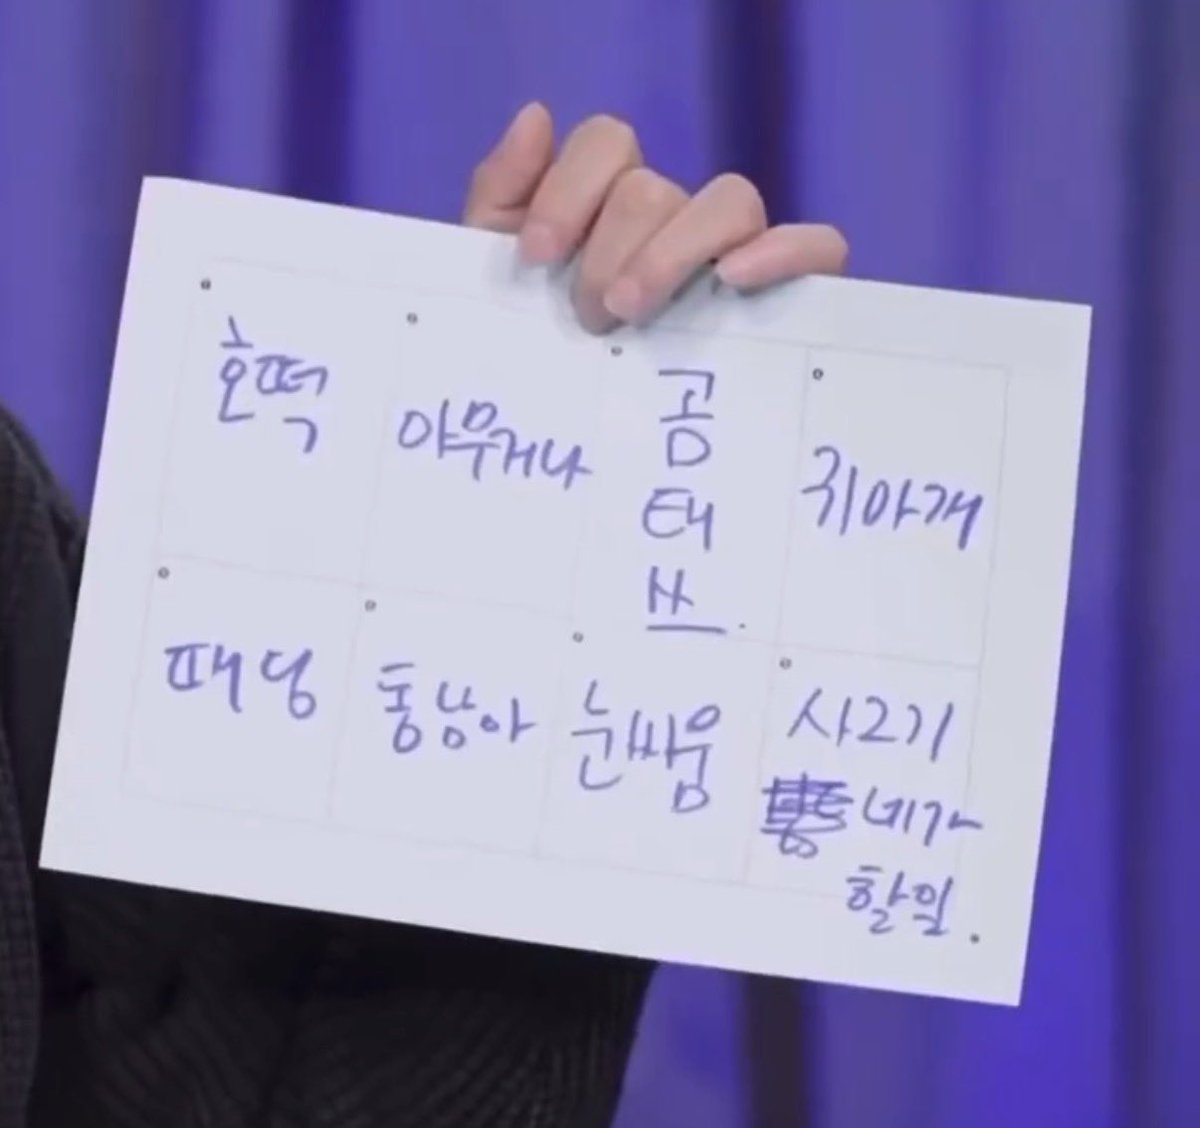 호떡
아무거나
곰
태
쓰.
귀아개
때 덩
통낭아
눈싸움
사고기
네가
할일.